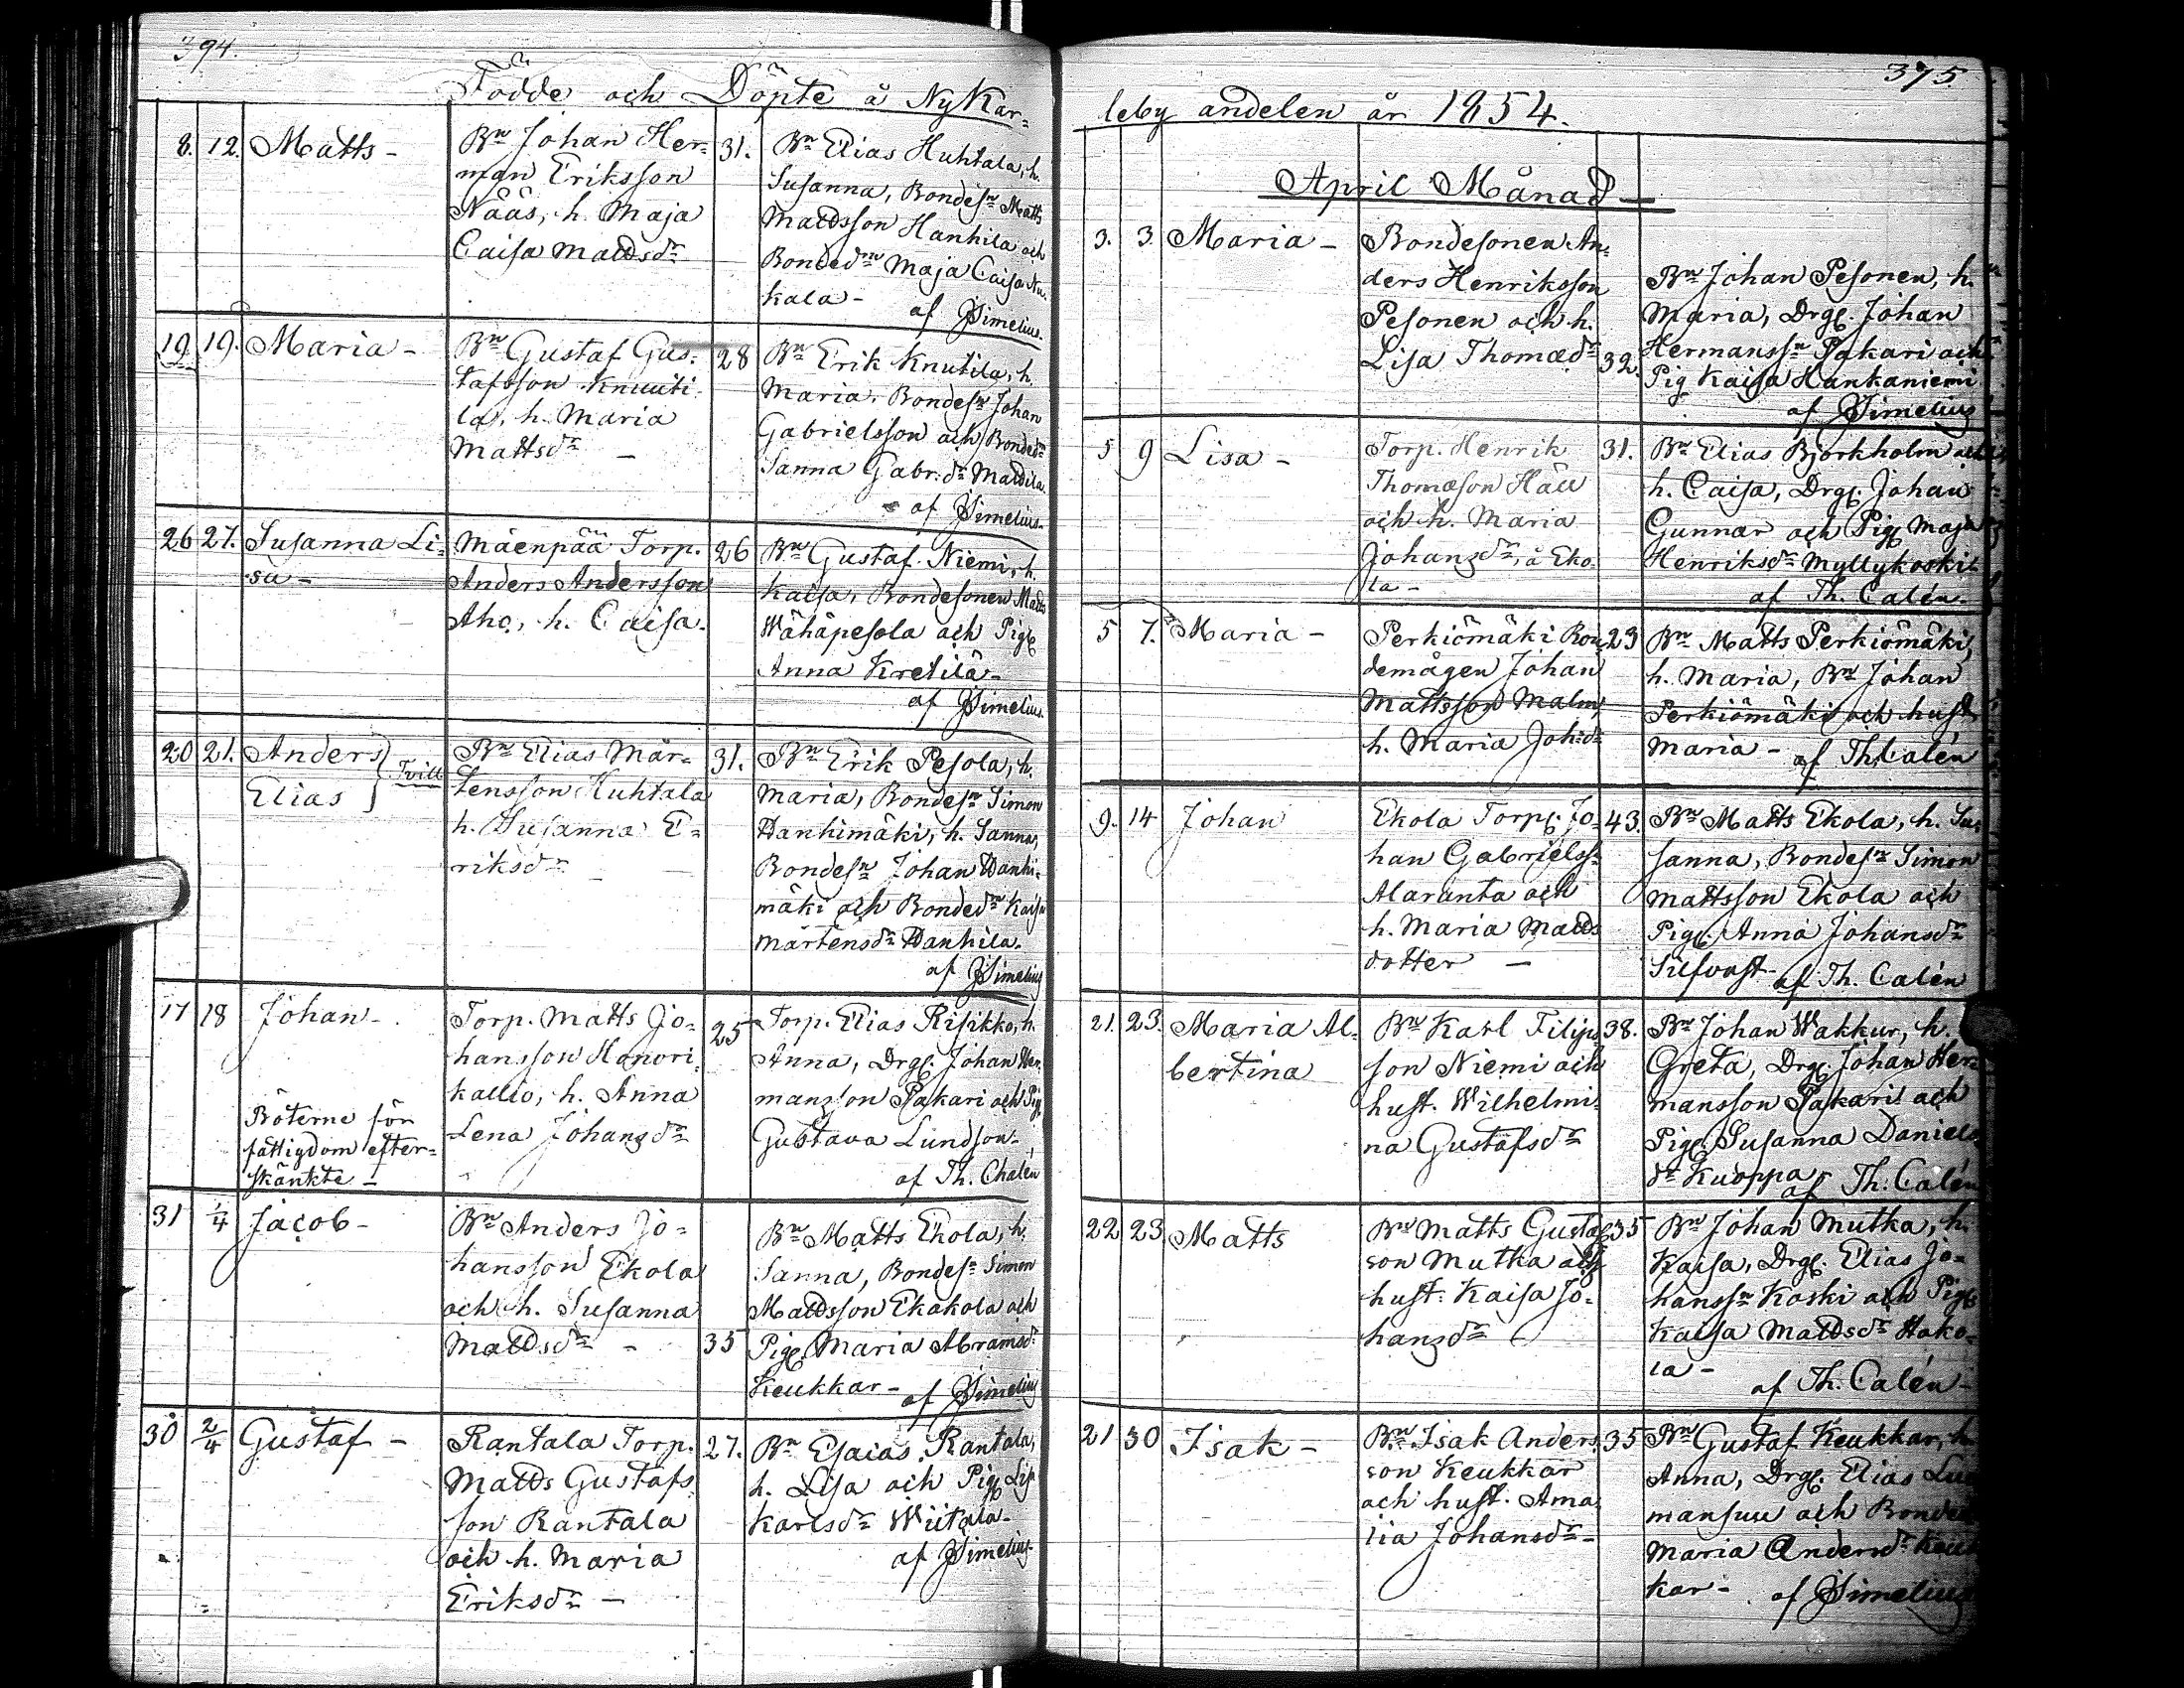 394.
Födde och Döpte å NyKar=
8. 12. Matts -
Bn Johan Her=
man Eriksson
Nääs, h. Maja
Caisa Mattsdr
31.
Bn Elias Huhtala, h.
Susanna, Bondesn Matts
Mattsson Hanhila och
Bondedn Maja Caisa
kala -
af JSimelius.
19 19. Maria -
Bn Gustaf Gus=
tafsson Knuuti
la, h. Maria
Mattsdr -
28
Bn Erik Knutila, h.
Maria, Bondesn Johan
Gabrielsson och Bondedn
Sanna Gabr.dr Mattila
af JSimelius.
26 27. Susanna Li=
sa -
Mäenpää Torp.
Anders Andersson
Aho, h. Caisa.
26
Bn Gustaf Niemi, h.
Kaisa, Bondesonen Matts
Wähäpesola och Pig.
Anna Kretilä -
af JSimelius.
20 21. Anders
Elias } Tvill
Bn Elias Mår=
tensson Huhtala
h. Susanna E=
riksdr -
31.
Bn Erik Pesola, h.
Maria, Bondesn Simon
Wanhimäki, h. Sanna,
Bondesn Johan Wanhi=
mäki och Bondedn Kaisa
Mårtensdr Wanhila.
af JSimelius
17 18 Johan -
Röterne för
fattigdom efter=
skänkte -
Torp. Matts Jo=
hansson Hanori
kallio, h. Anna
Lena Johansdr
25
Torp. Elias Risikko, h.
Anna, Drg. Johan Her
mansson Pakari och Pig.
Gustava Lundson -
af Th. Chalén
31 1/4 Jacob -
Bn Anders Jo=
hansson Ekola
och h. Susanna
Mattsdr -
35
Bn Matts Ekola, h.
Sanna, Bondesn Simon
Mattsson Ekakola och
Pig. Maria Abramsdr
Keukkar - af JSimelius
30 2/4 Gustaf -
Rantala Torp.
Matts Gustafs
son Rantala
och h. Maria
Eriksdr -
27.
Bn Esaias Rantala,
h. Lisa och Pig. Lis
Karlsdr Wiitala -
af JSimelius
375.
leby andelen år 1854.
April Månad -
3. 3. Maria -
Bondesonen An=
ders Henriksson
Pesonen och h.
Lisa Thomædr
32.
Bn Johan Pesonen, h.
Maria, Drg. Johan
Hermanssn Pakari och
Pig Kaisa Hankaniemi
af JSimelius
5 9 Lisa -
Torp. Henrik
Thomæson Häu
och h. Maria
Johansdr, å Eko
la -
31.
Bn Elias Björkholm och
h. Caisa, Drg. Johan
Gunnar och Pig. Maja
Henriksdr Myllykoski -
af Th. Calén.
5 7. Maria -
Perkiömäki Bon
demågen Johan
Mattsson Malm,
h. Maria Joh:dr
23
Bn Matts Perkiömäki,
h. Maria, Bn Johan
Perkiömäki och hust
Maria - af Th. Calén
9. 14 Johan
Ekola Torp. Jo=
han Gabrielss.
Alaranta och
h. Maria Matts
dotter -
43.
Bn Matts Ekola, h. Su=
sanna, Bondesn Simon
Mattsson Ekola och
Pig. Anna Johansdr
Silfvast - af Th. Calén
21. 23. Maria Al=
bertina
Bn Karl Filips
son Niemi och
hust. Wilhelmi=
na Gustafsdr
38.
Bn Johan Wakkur, h.
Greta, Drg. Johan Her=
mansson Pakari och
Pig. Susanna Daniels
dr Kuoppa
af Th. Calén
22 23 Matts
Bn Matts Gustafs
son Mutka och
hust. Kaisa Jo=
hansdr
35
Bn Johan Mutka, h.
Kaisa, Drg. Elias Jo=
hanssn Koski och Pig.
Kaisa Mattsdr Hako=
la -
af Th. Calén -
21 30 Isak -
Bn Isak Anders
son Keukkar
och hust. Ama=
lia Johansdr -
35
Bn Gustaf Keukkar, h.
Anna, Drg. Elias
mansuu och Bonded
Maria Andersdr Keuk
kar - af JSimelius